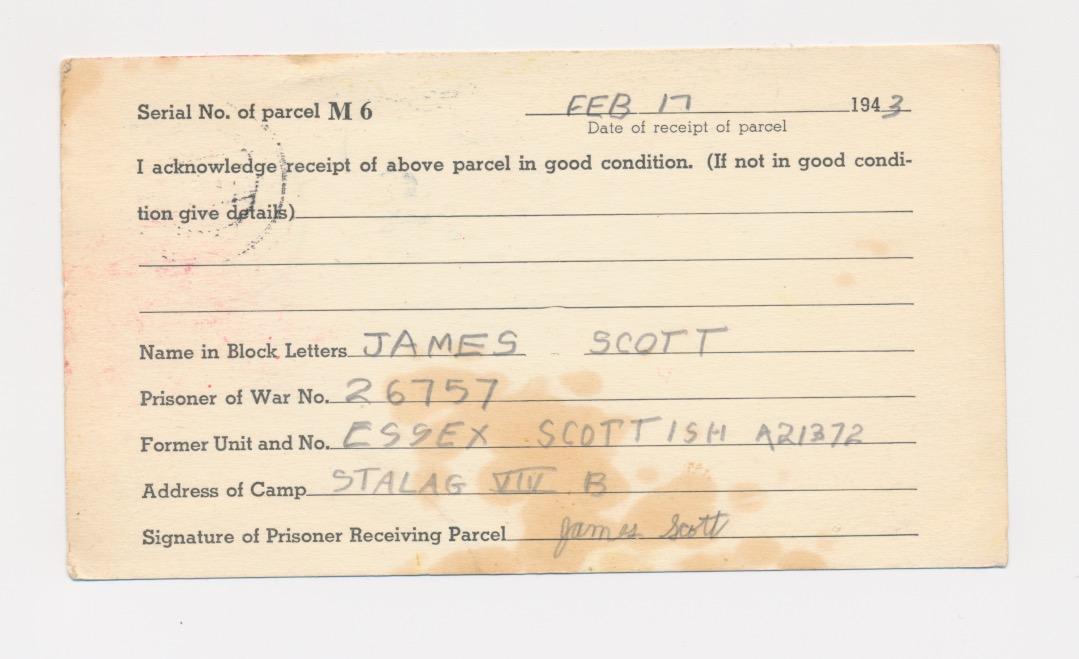 Serial No. of parcel M 6 FEB 17 1943
Date of receipt of parcel
I acknowledge receipt of above parcel in good condition. (If not in good condi-
tion give details)
Name in Block Letters JAMES SCOTT
Prisoner of War No. 26757
Former Unit and No. ESSEX SCOTTISH A21372
Address of Camp STALAG VIII B
Signature of Prisoner Receiving Parcel James Scott